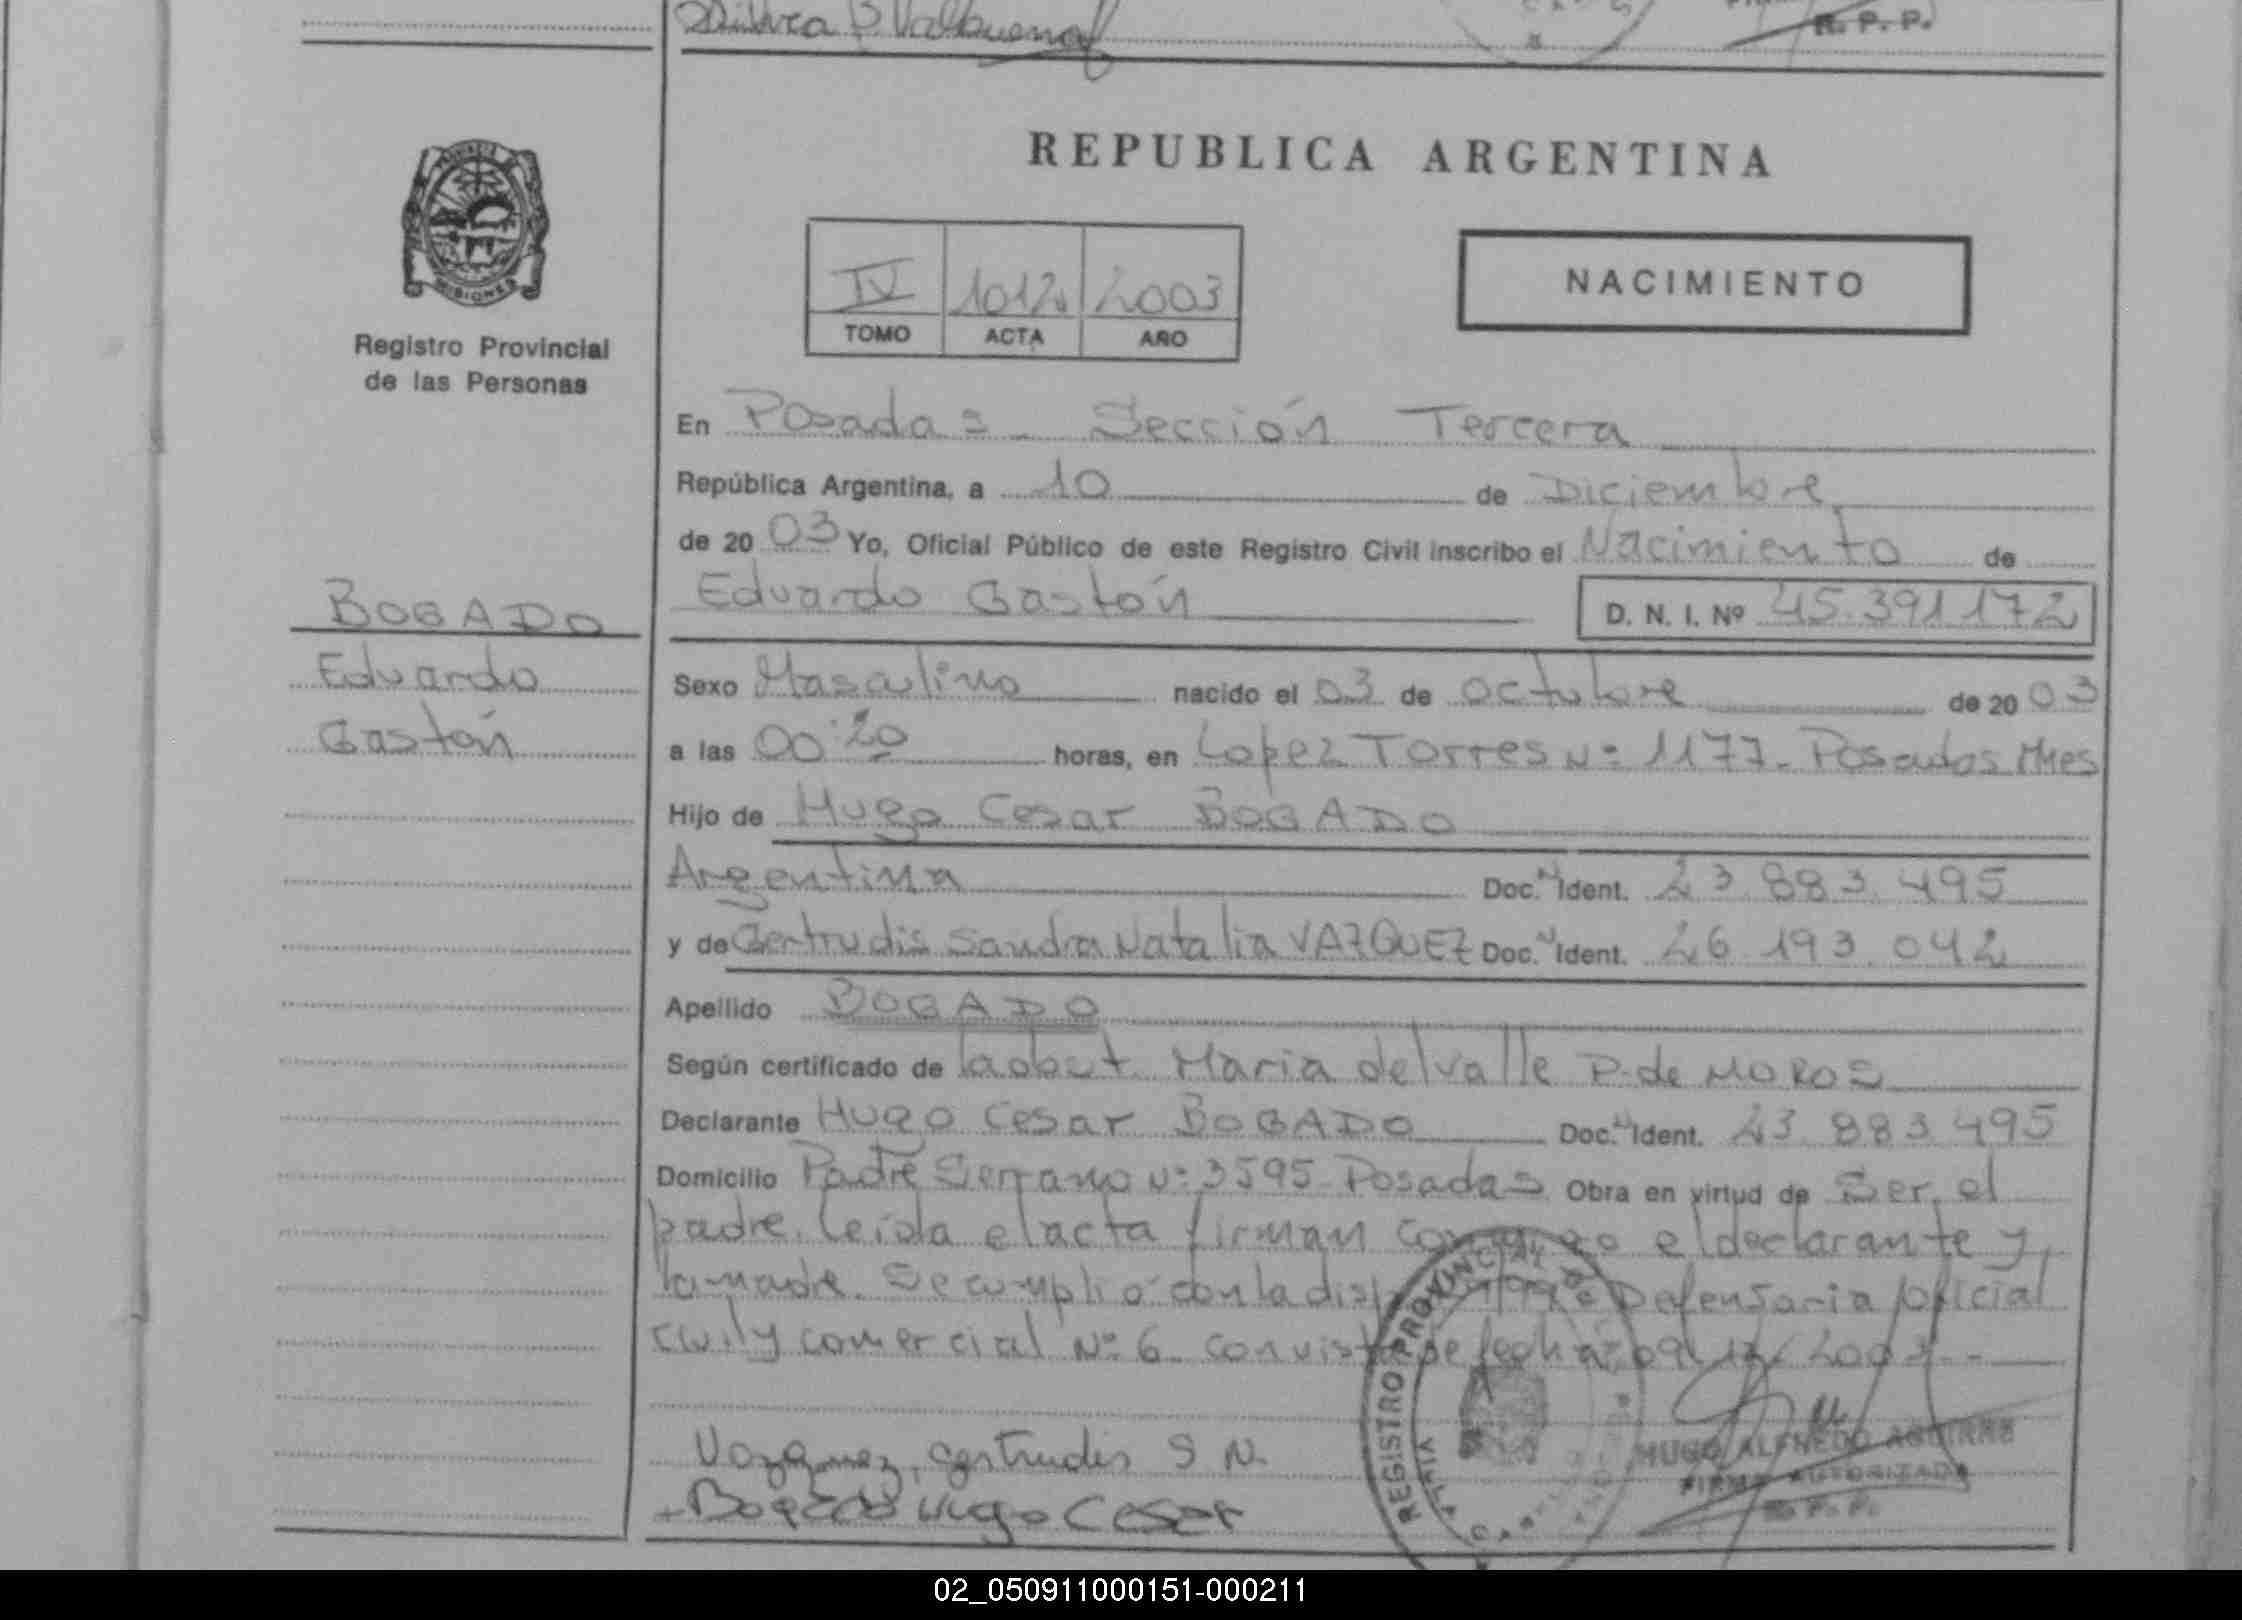 Valbuena
R. P. P.
PROVINCIA
MISIONES
Registro Provincial
de las Personas
REPUBLICA ARGENTINA
IV 1012 2003
TOMO ACTA AÑO
NACIMIENTO
En Posadas - Sección Tercera
República Argentina, a 10 de Diciembre
de 20 03 Yo, Oficial Público de este Registro Civil inscribo el Nacimiento de
BOGADO
Eduardo
Gastón
Eduardo Gastón D. N. I. Nº 45.391172
Sexo Masculino nacido el 03 de octubre de 20 03
a las 00:20 horas, en Lopez Torres Nº 1177- Posadas Mnes
Hijo de Hugo Cesar BOGADO
Argentina Doc. N Ident. 23.883.495
y de Gertrudis Sandra Natalia VAZQUEZ Doc. N Ident. 26.193.042
Apellido BOGADO
Según certificado de la obst. Maria del valle P. de MOROS
Declarante Hugo Cesar BOGADO Doc. N Ident. 23.883.495
Domicilio Padre Serrano Nº 3595- Posadas Obra en virtud de Ser el
padre. leida el acta firman conmigo el declarante y
la madre. Se cumplio con la disp. Defensoria oficial
civil y comercial Nº 6. con vista de fecha: 09/12/2003.-
Vazquez, gertrudis S N.
Bogado Hugo Cesar
REGISTRO PROVINCIAL
HUGO ALFREDO AGUIRRE
FIRMA AUTORIZADA
R. P. P.
02_050911000151-000211